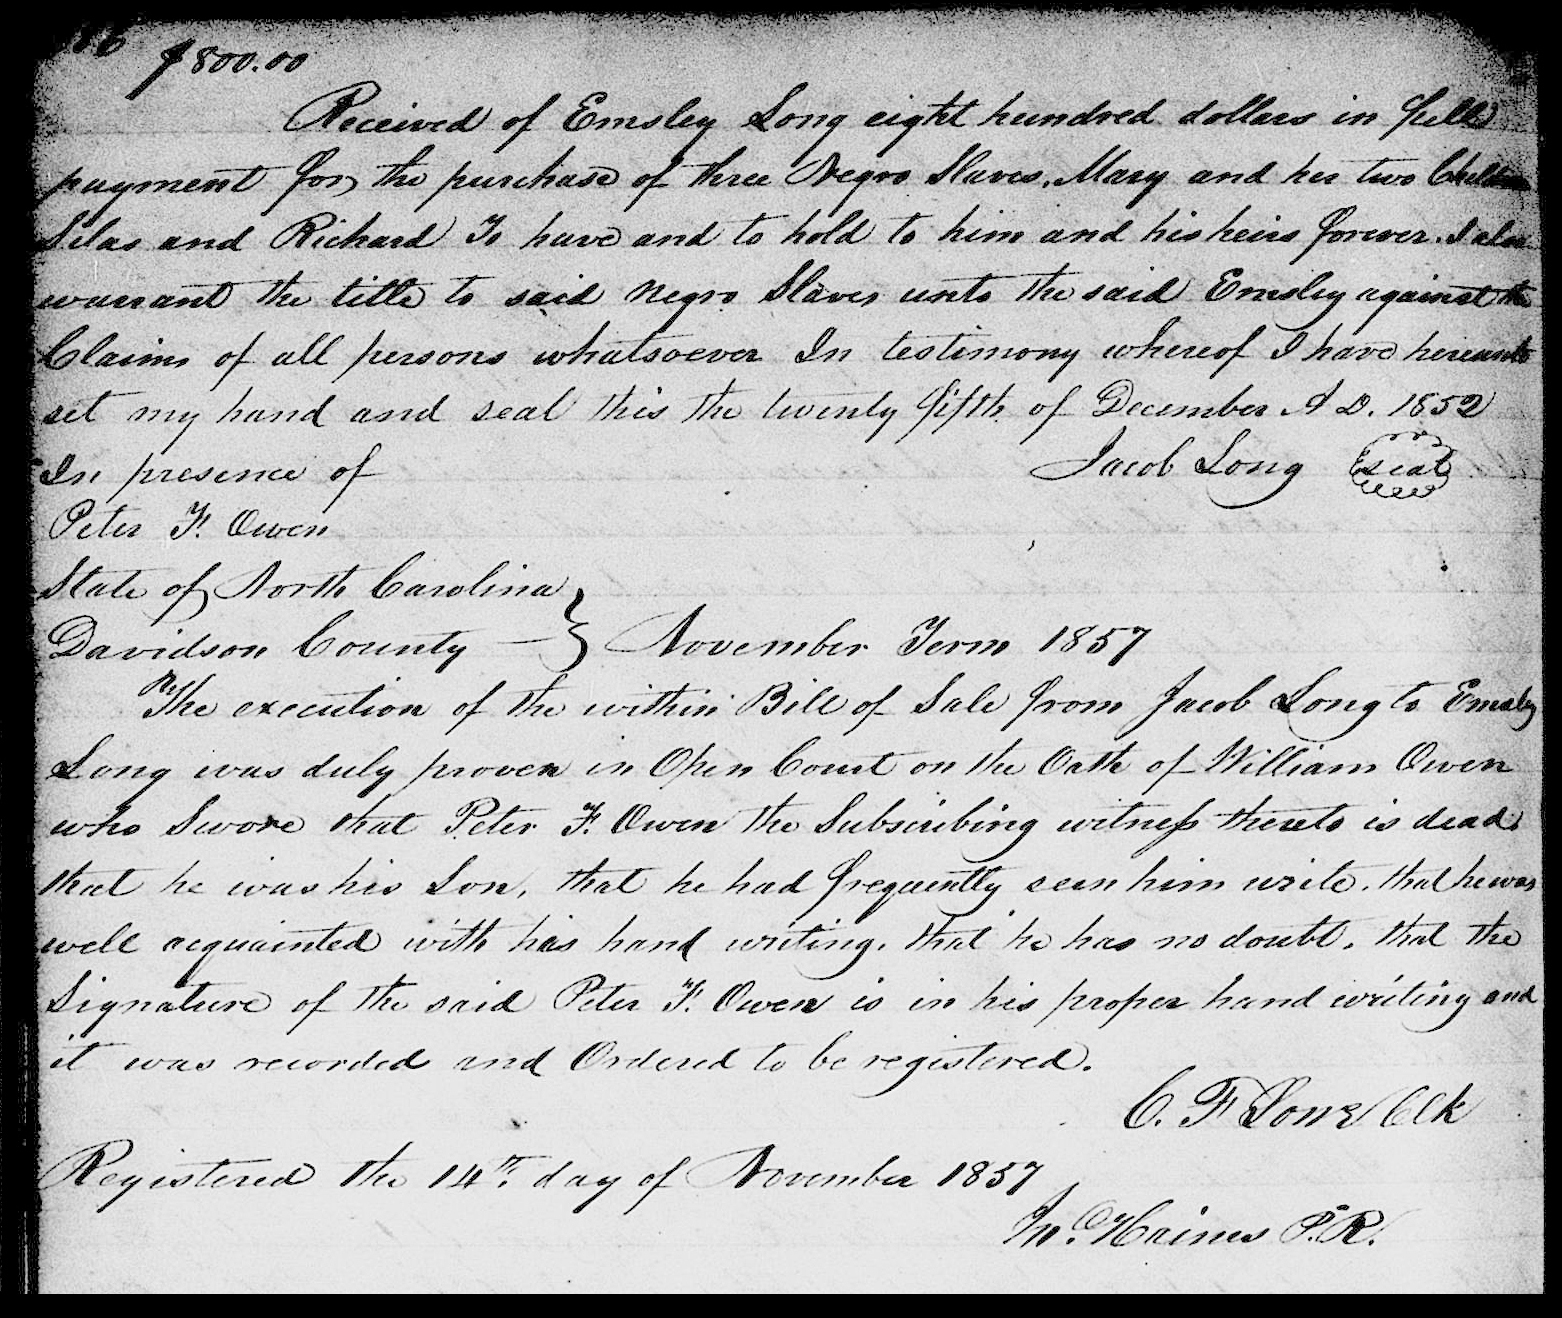 $800.00
Received of Emsley Long eight hundred dollars in full
payment for the purchase of three Negro Slaves, Mary and her two Children
Silas and Richard To have and to hold to him and his heirs forever. I also
warrant the title to said negro Slaves unto the said Emsley against the
Claims of all persons whatsoever In testimony whereof I have hereunto
set my hand and seal this the twenty fifth of December A D. 1852
In presence of Jacob Long seal
Peter F. Owen
State of North Carolina
Davidson County } November Term 1857
The execution of the within Bill of Sale from Jacob Long to Emsley
Long was duly proven in Open Court on the Oath of William Owen
who Swore that Peter F. Owen the Subscribing witness thereto is dead,
that he was his Son, that he had frequently seen him write, that he was
well acquainted with his hand writing, that he has no doubt, that the
Signature of the said Peter F. Owen is in his proper hand writing and
it was recorded and Ordered to be registered.
C. F Lowe Clk
Registered the 14th. day of November 1857
Haines P.R.